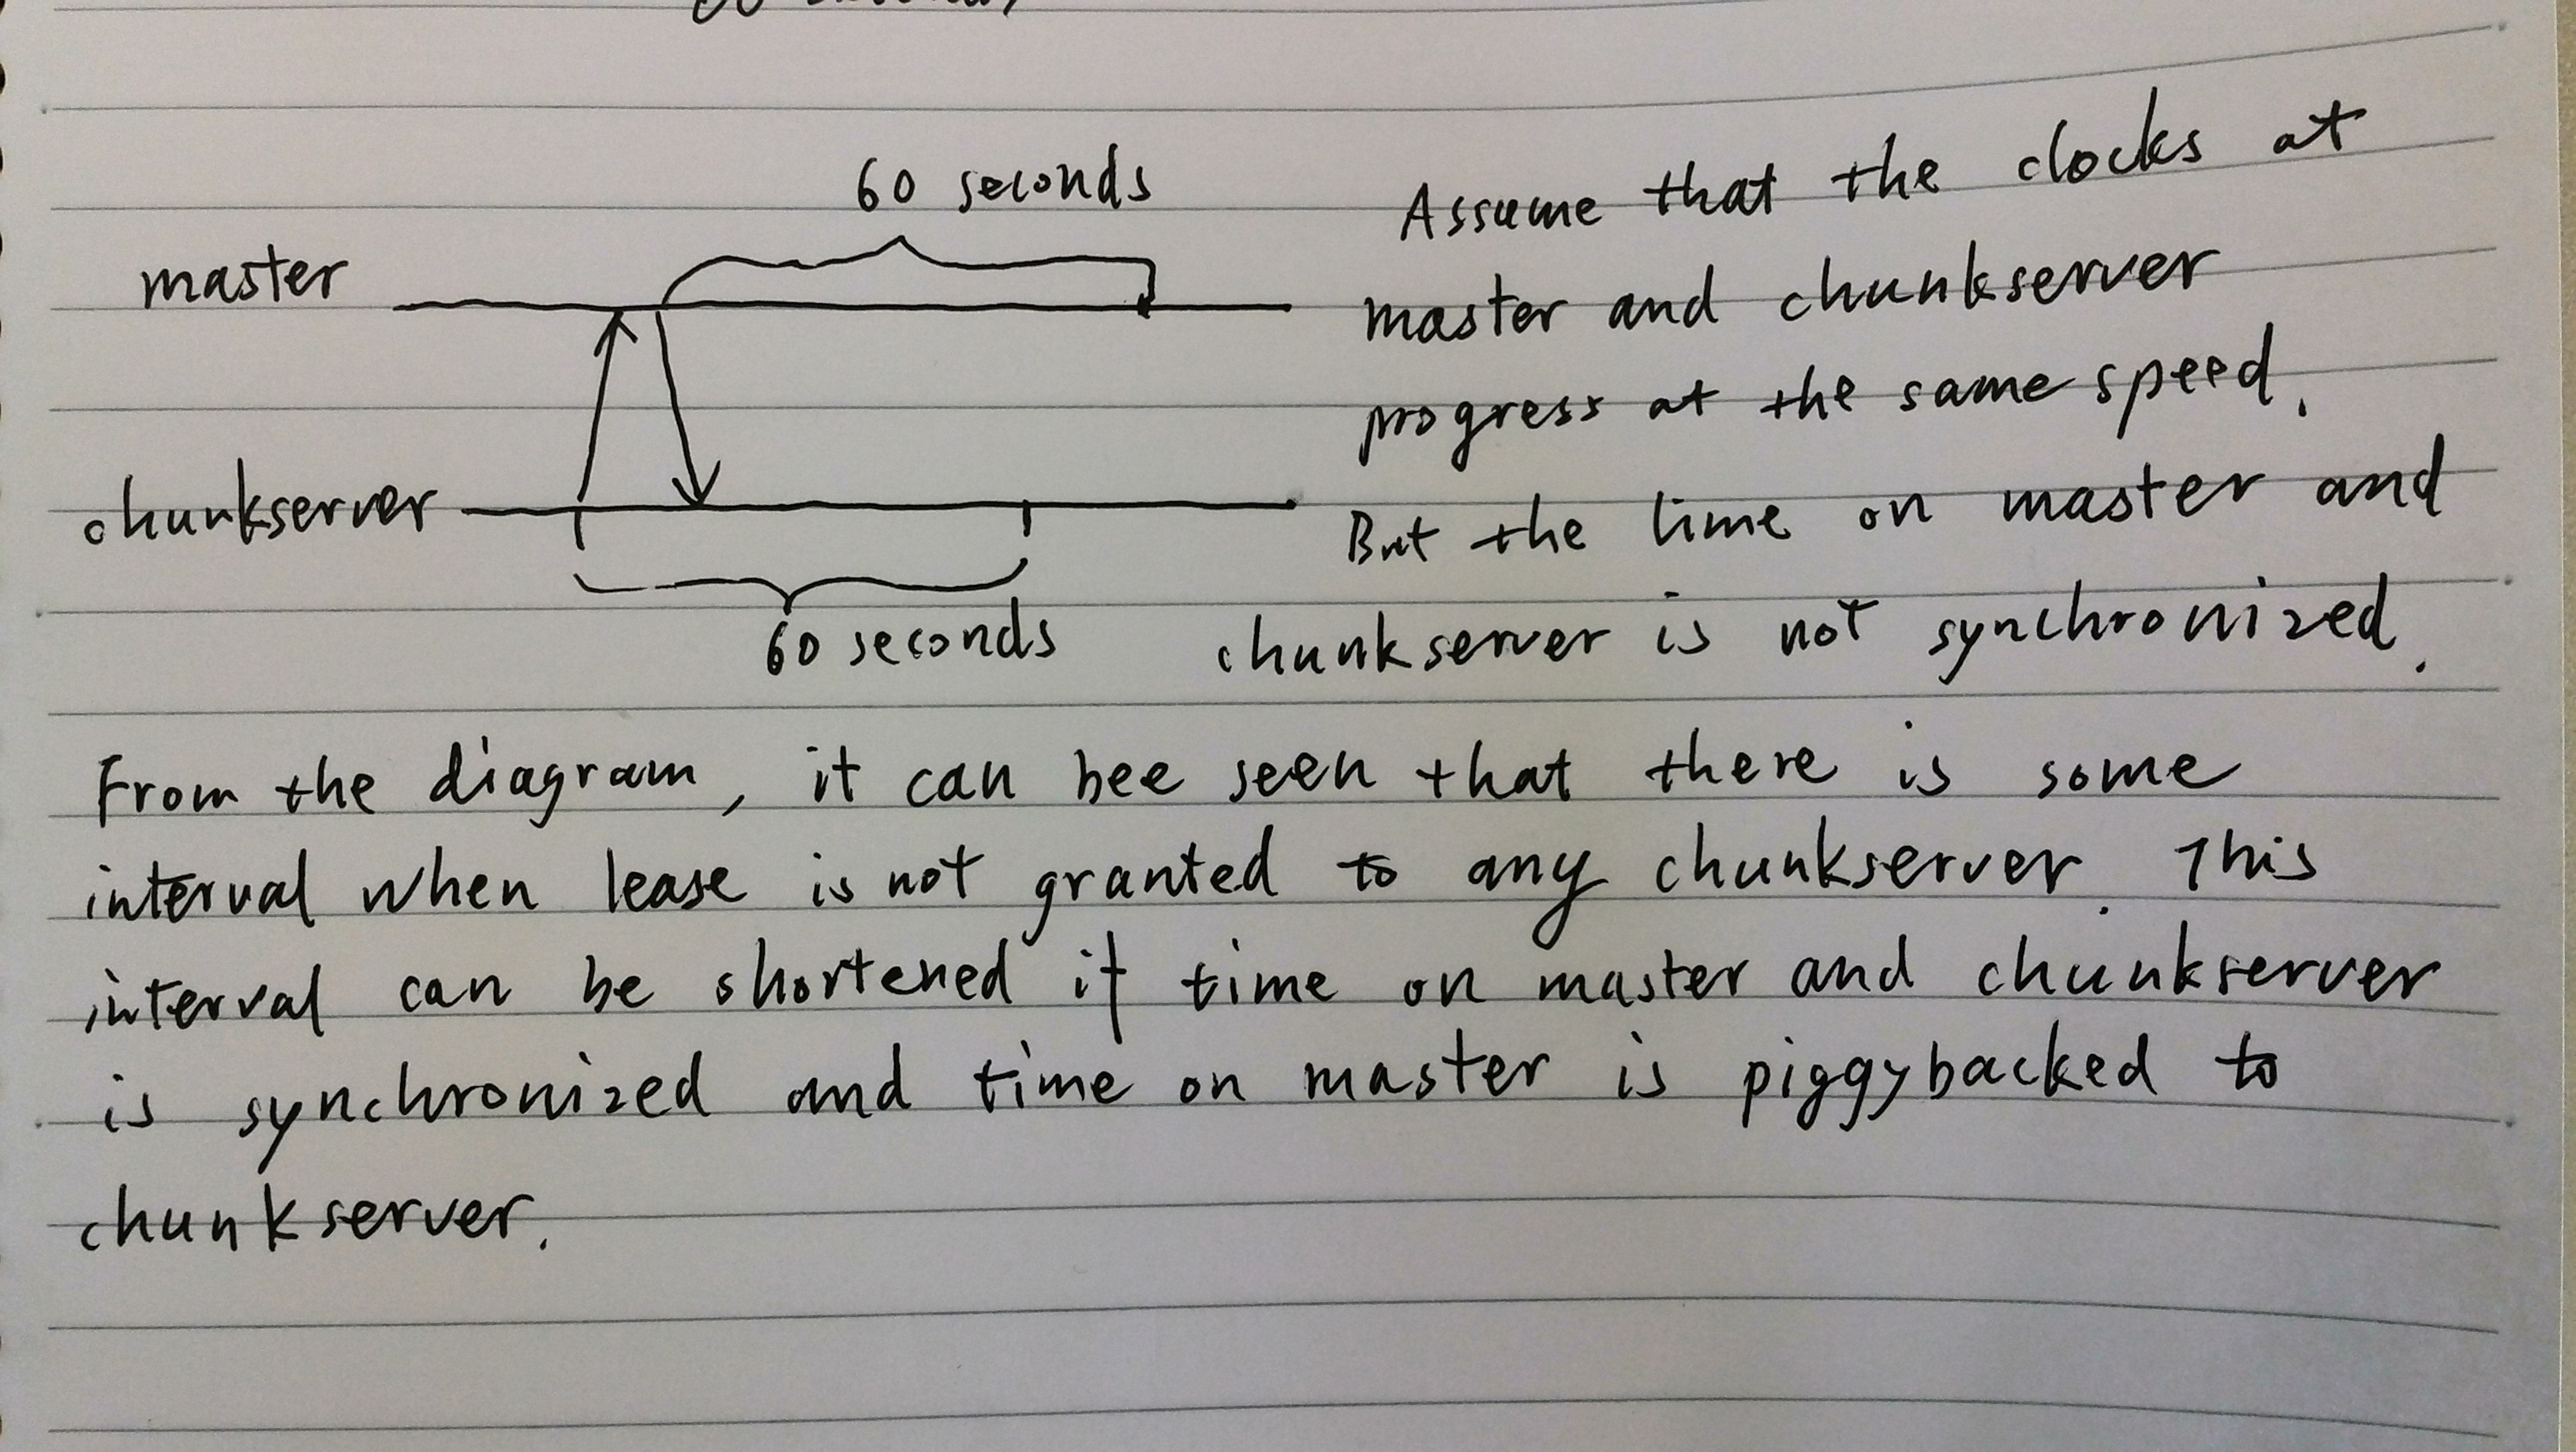 60 seconds
Assume that the clocks at
master
master and chunkserver
progress at the same speed.
chunkserver
But the time on master and
60 seconds
chunkserver is not synchronized.
From the diagram, it can bee seen that there is some
interval when lease is not granted to any chunkserver. This
interval can be shortened if time on master and chunkserver
is synchronized and time on master is piggybacked to
chunkserver.